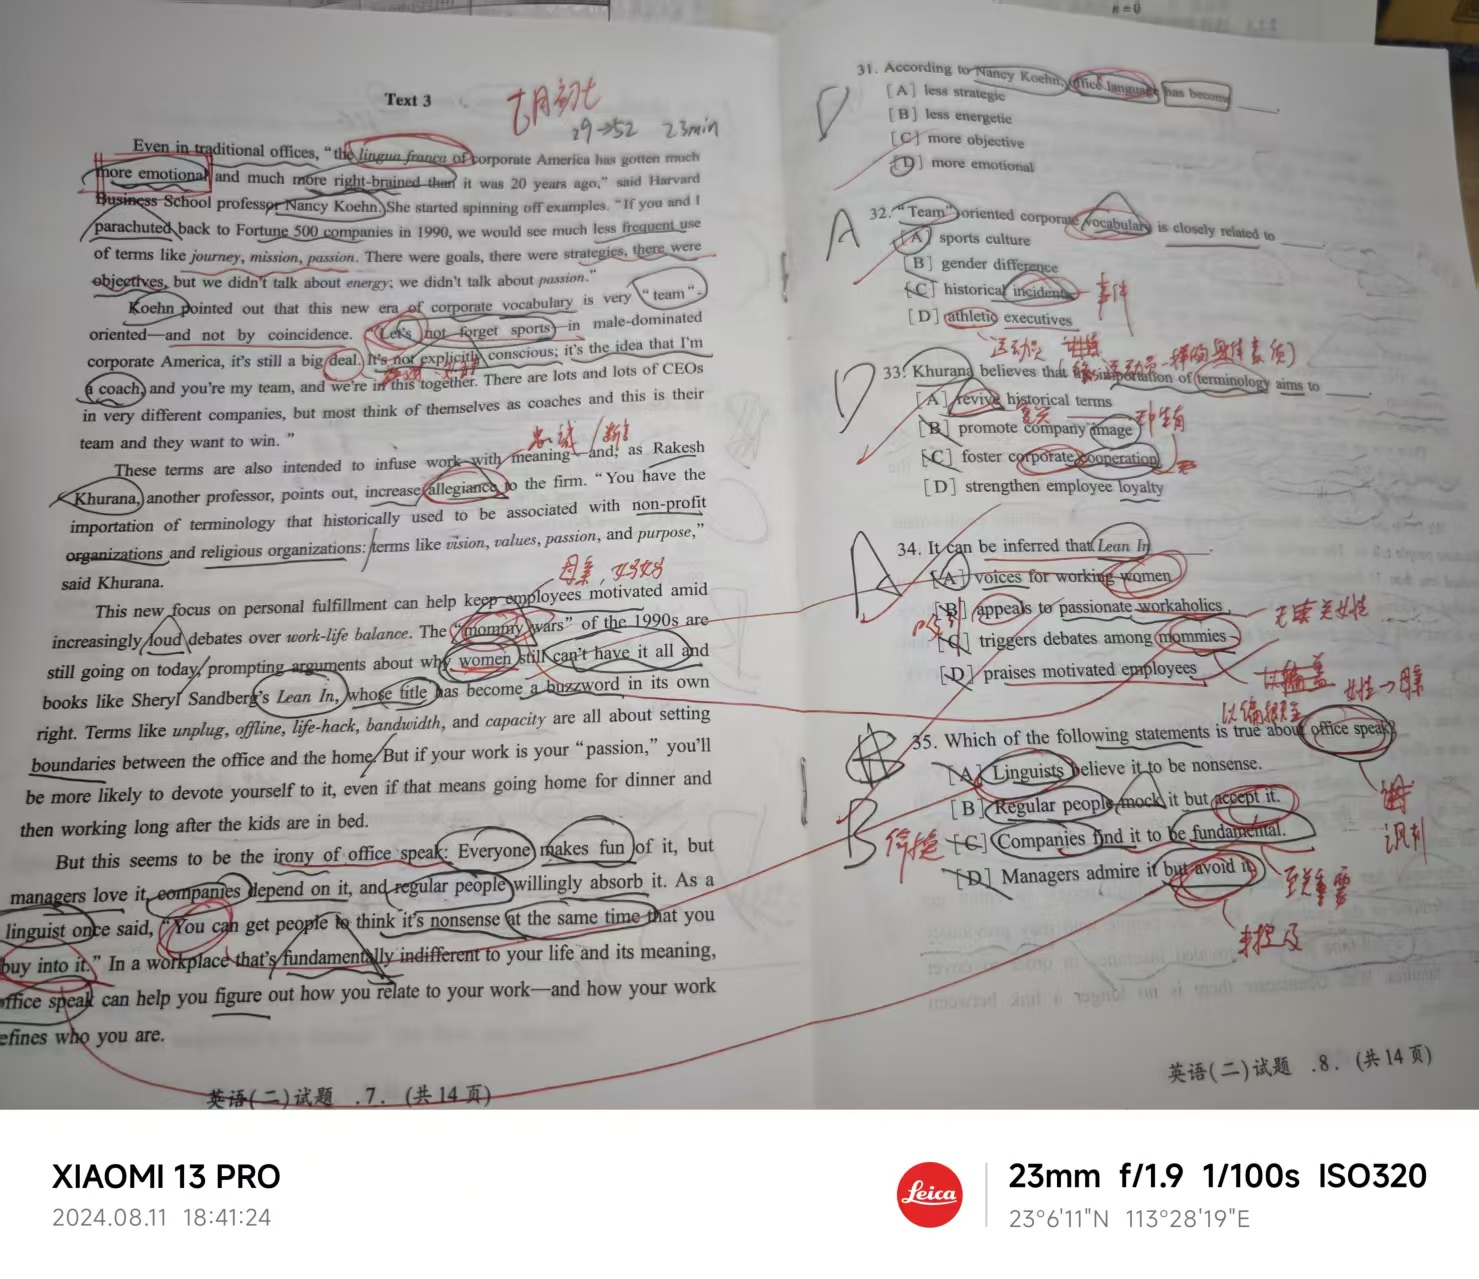 n=0
Text 3
七月初七
29→52 23min
Even in traditional offices, “the lingua franca of corporate America has gotten much
more emotional and much more right-brained than it was 20 years ago,” said Harvard
Business School professor Nancy Koehn. She started spinning off examples. “If you and I
parachuted back to Fortune 500 companies in 1990, we would see much less frequent use
of terms like journey, mission, passion. There were goals, there were strategies, there were
objectives, but we didn't talk about energy; we didn't talk about passion.”
Koehn pointed out that this new era of corporate vocabulary is very “team”-
oriented—and not by coincidence. “Let's not forget sports—in male-dominated
corporate America, it's still a big deal. It's not explicitly conscious; it's the idea that I'm
a coach, and you're my team, and we're in this together. There are lots and lots of CEOs
in very different companies, but most think of themselves as coaches and this is their
team and they want to win. ”
These terms are also intended to infuse work with meaning—and, as Rakesh
Khurana, another professor, points out, increase allegiance to the firm. “You have the
importation of terminology that historically used to be associated with non-profit
organizations and religious organizations: terms like vision, values, passion, and purpose,”
said Khurana.
This new focus on personal fulfillment can help keep employees motivated amid
increasingly loud debates over work-life balance. The “mommy wars” of the 1990s are
still going on today, prompting arguments about why women still can't have it all and
books like Sheryl Sandberg's Lean In, whose title has become a buzzword in its own
right. Terms like unplug, offline, life-hack, bandwidth, and capacity are all about setting
boundaries between the office and the home. But if your work is your “passion,” you'll
be more likely to devote yourself to it, even if that means going home for dinner and
then working long after the kids are in bed.
But this seems to be the irony of office speak: Everyone makes fun of it, but
managers love it, companies depend on it, and regular people willingly absorb it. As a
linguist once said, “You can get people to think it's nonsense at the same time that you
buy into it.” In a workplace that's fundamentally indifferent to your life and its meaning,
office speak can help you figure out how you relate to your work—and how your work
efines who you are.
英语(二)试题 .7. (共14页)
31. According to Nancy Koehn, office language has become ____.
[A] less strategic
[B] less energetic
[C] more objective
[D] more emotional
D
32. “Team”-oriented corporate vocabulary is closely related to ____.
[A] sports culture
[B] gender difference
[C] historical incidents
[D] athletic executives
A
事件
运动员
33. Khurana believes that the importation of terminology aims to ____.
[A] revive historical terms
[B] promote company image
[C] foster corporate cooperation
[D] strengthen employee loyalty
D
34. It can be inferred that Lean In ____.
[A] voices for working women
[B] appeals to passionate workaholics
[C] triggers debates among mommies
[D] praises motivated employees
A
女性→母亲
35. Which of the following statements is true about office speak?
[A] Linguists believe it to be nonsense.
[B] Regular people mock it but accept it.
[C] Companies find it to be fundamental.
[D] Managers admire it but avoid it.
B
讽刺
至关重要
英语(二)试题 .8. (共14页)
XIAOMI 13 PRO
2024.08.11 18:41:24
Leica
23mm f/1.9 1/100s ISO320
23°6'11"N 113°28'19"E